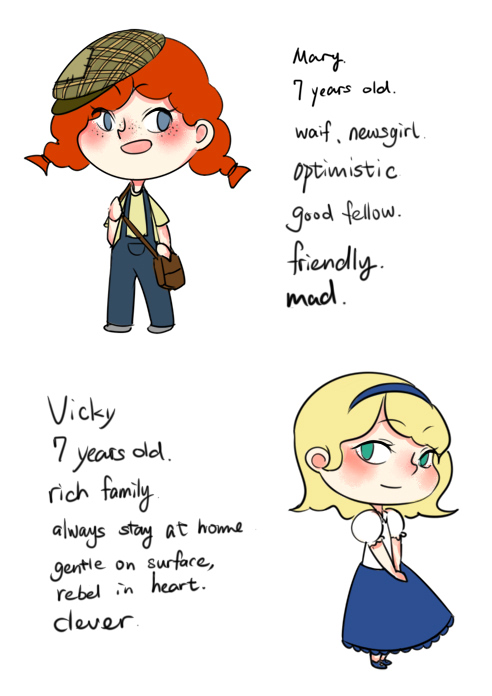 Mary.
7 years old.
waif, newsgirl.
optimistic
good fellow.
friendly.
mad.
Vicky
7 years old.
rich family
always stay at home
gentle on surface,
rebel in heart.
clever.